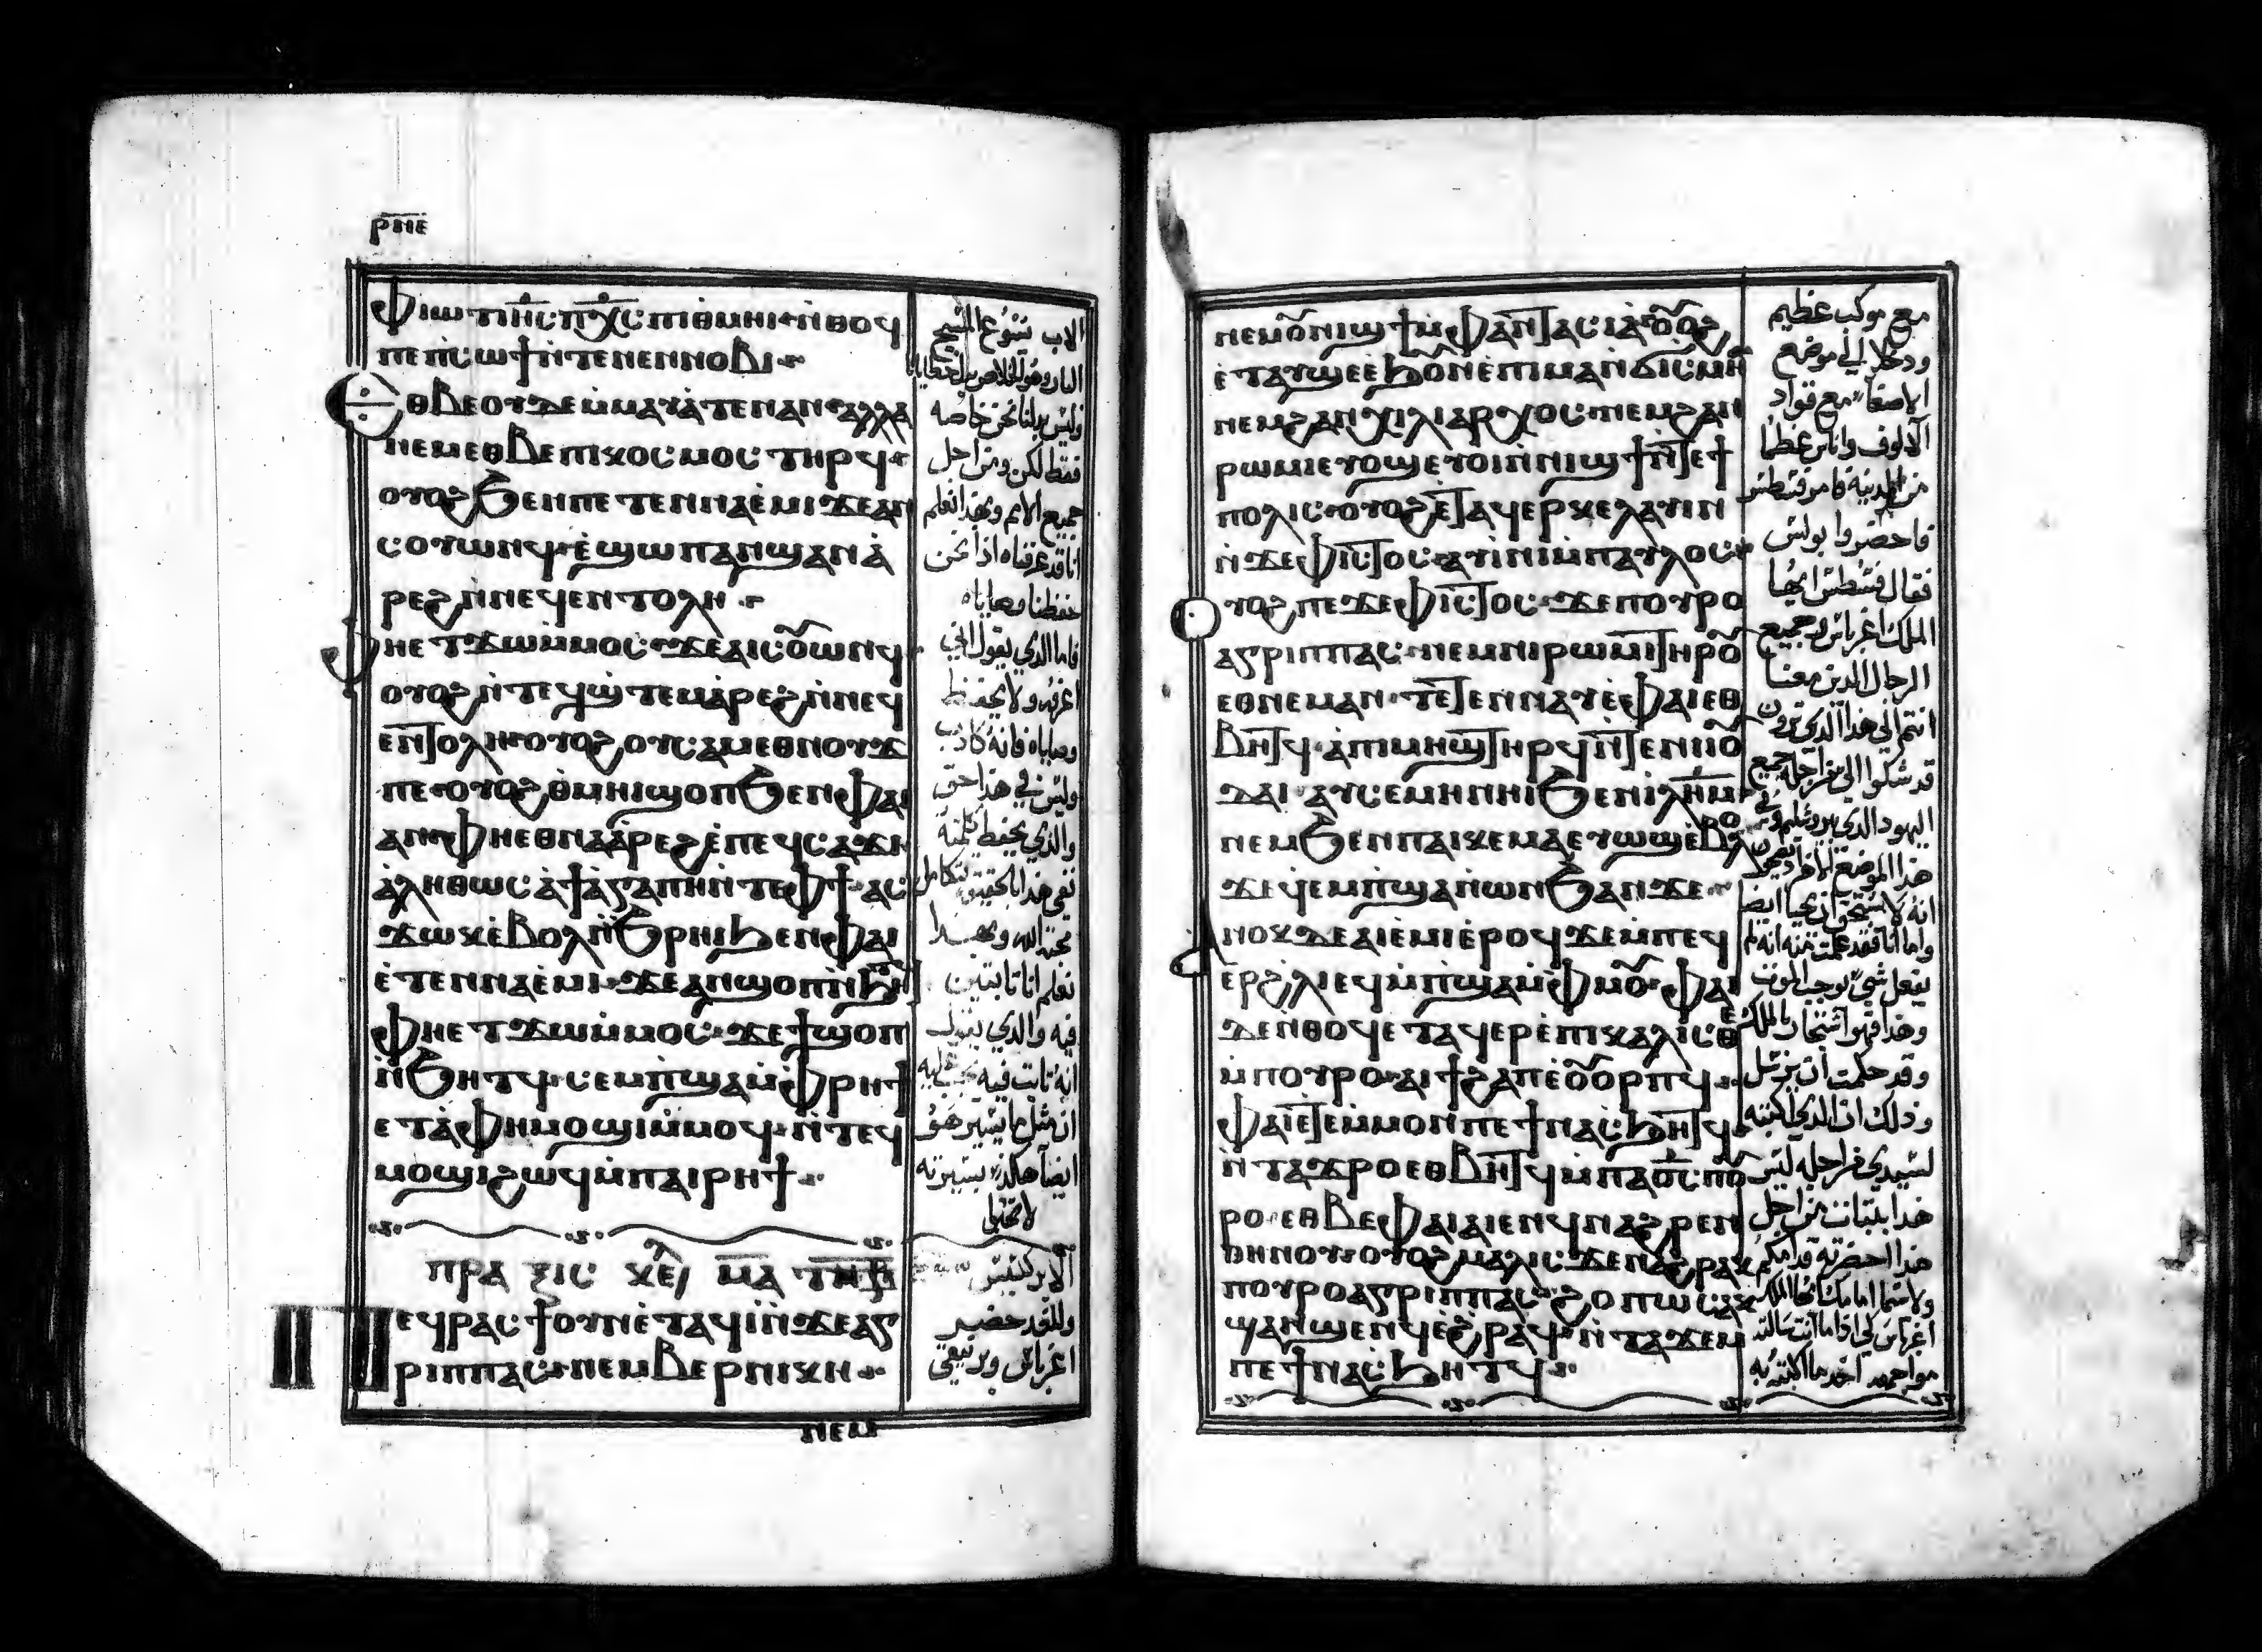 ⲣⲛⲉ
ⲫⲓⲱⲧ ⲓⲏ̅ⲥ̅ ⲡⲭ̅ⲥ̅ ⲡⲓⲑⲙⲏⲓ ⲛ̀ⲑⲟϥ
ⲡⲉ ⲡⲓⲥⲱϯ ⲛ̀ⲧⲉ ⲛⲉⲛⲛⲟⲃⲓ
ⲉⲑⲃⲉ ⲟⲩ ϫⲉ ⲙ̀ⲙⲁⲩⲁⲧⲉⲛ ⲁⲛ ⲁⲗⲗⲁ
ⲛⲉⲙ ⲉⲑⲃⲉ ⲡⲓⲕⲟⲥⲙⲟⲥ ⲧⲏⲣϥ
ⲟⲩⲟϩ ϧⲉⲛ ⲡⲉⲧⲉⲛⲛⲁⲉ̀ⲙⲓ ϫⲉ ⲁⲛ
ⲥⲟⲩⲱⲛϥ ⲉ̀ϣⲱⲡ ⲁⲛϣⲁⲛⲁ̀
ⲣⲉϩ ⲛ̀ⲛⲉϥⲉⲛⲧⲟⲗⲏ
ⲫⲏⲉⲧϫⲱ ⲙ̀ⲙⲟⲥ ϫⲉ ⲁⲓⲥⲟⲩⲱⲛϥ
ⲟⲩⲟϩ ⲛ̀ⲧⲉϥϣ̀ⲧⲉⲙⲁ̀ⲣⲉϩ ⲛ̀ⲛⲉϥ
ⲉⲛⲧⲟⲗⲏ ⲟⲩⲟϩ ⲟⲩⲥⲁⲙⲉⲑⲛⲟⲩϫ
ⲡⲉ ⲟⲩⲟϩ ⲑ̀ⲙⲏⲓ ϣⲟⲡ ϧⲉⲛ ⲫⲁⲓ
ⲁⲛ ⲫⲏⲉⲑⲛⲁⲁ̀ⲣⲉϩ ⲉ̀ⲡⲉϥⲥⲁϫⲓ
ⲁ̀ⲗⲏⲑⲱⲥ ⲁ̀ϯⲁ̀ⲅⲁⲡⲏ ⲛ̀ⲧⲉ ⲫϯ ⲁⲥ
ϫⲱⲕ ⲉ̀ⲃⲟⲗ ⲛ̀ϧⲣⲏⲓ ϧⲉⲛ ⲫⲁⲓ
ⲉ̀ⲧⲉⲛⲛⲁⲉ̀ⲙⲓ ϫⲉ ⲁⲛϣⲟⲡ ⲛ̀ϧⲏⲧϥ
ⲫⲏⲉⲧϫⲱ ⲙ̀ⲙⲟⲥ ϫⲉ ϯϣⲟⲡ
ⲛ̀ϧⲏⲧϥ ⲥⲉⲙ̀ⲡϣⲁ ⲙ̀ⲫⲣⲏϯ
ⲉⲧⲁ̀ⲫⲏ ⲙⲟϣⲓ ⲙ̀ⲙⲟϥ ⲛ̀ⲧⲉϥ
ⲙⲟϣⲓ ϩⲱϥ ⲙ̀ⲡⲁⲓⲣⲏϯ
ⲡⲣⲁⲝⲓⲥ ⲕⲉ̅
ⲡⲉϥⲣⲁⲥϯ ⲟⲩⲛ ⲉ̀ⲧⲁϥⲓ̀ ⲛ̀ϫⲉ ⲁⲅ
ⲣⲓⲡⲡⲁⲥ ⲛⲉⲙ ⲃⲉⲣⲛⲓⲕⲏ
ⲛⲉⲙ
الاب يسوع المسيح
البار وهو الخلاص بدل خطايانا
وليس بدلنا نحن خاصه
فقط لكن ومن اجل
جميع الامم وبهذا نعلم
اننا قد عرفناه اذا نحن
حفظنا وصاياه
فاما الذي يقول اني
اعرفه ولا يحفظ
وصاياه فانه كاذب
وليس في هذا حق
والذي يحفظ كلمته
ففي هذا بالحقيقه تتكامل
محبة الله وبهذا
نعلم اننا ثابتين
فيه والذي يقول
انه ثابت فيه يجب عليه
ان مثل ما يسير هو
ايضا هكذا يسير
الابركسيس
وللغد حضر
اغرباس وبرنيقي
ⲛⲉⲙ ⲟⲩⲛⲓϣϯ ⲙ̀ⲫⲁⲛⲧⲁⲥⲓⲁ̀ ⲟⲩⲟϩ
ⲉ̀ⲧⲁⲩϣⲉ ⲉ̀ϧⲟⲩⲛ ⲉ̀ⲡⲓⲙⲁⲛ̀ϭⲓⲥⲙⲏ
ⲛⲉⲙ ϩⲁⲛⲭⲓⲗⲓⲁⲣⲭⲟⲥ ⲛⲉⲙ ϩⲁⲛ
ⲣⲱⲙⲓ ⲉⲩⲟϣ ⲉⲩⲟⲓ ⲛ̀ⲛⲓϣϯ ⲛ̀ⲧⲉ ϯ
ⲡⲟⲗⲓⲥ ⲟⲩⲟϩ ⲉ̀ⲧⲁϥⲉⲣⲕⲉⲗⲁⲩⲓⲛ
ⲛ̀ϫⲉ ⲫⲓⲥⲧⲟⲥ ⲁⲩⲓ̀ⲛⲓ ⲙ̀ⲡⲁⲩⲗⲟⲥ
ⲟⲩⲟϩ ⲡⲉϫⲉ ⲫⲓⲥⲧⲟⲥ ϫⲉ ⲡⲟⲩⲣⲟ
ⲁⲅⲣⲓⲡⲡⲁⲥ ⲛⲉⲙ ⲛⲓⲣⲱⲙⲓ ⲧⲏⲣⲟⲩ
ⲉⲑⲛⲉⲙⲁⲛ ⲧⲉⲧⲉⲛⲛⲁⲩ ⲉ̀ⲫⲁⲓ ⲉⲑ
ⲃⲏⲧϥ ⲁ̀ⲡⲓⲙⲏϣ ⲧⲏⲣϥ ⲛ̀ⲧⲉ ⲛⲓⲓⲟⲩ
ⲇⲁⲓ ⲁⲩⲥⲉⲙⲏ ⲛⲏⲓ ϧⲉⲛ ⲓⲗ̅ⲏ̅ⲙ̅
ⲛⲉⲙ ϧⲉⲛ ⲡⲁⲓⲕⲉⲙⲁ ⲉⲩⲱϣ ⲉ̀ⲃⲟⲗ
ϫⲉ ϥ̀ⲉⲙⲡϣⲁ ⲛ̀ⲱⲛϧ ⲁⲛ ϫⲉ
ⲁⲛⲟⲕ ⲇⲉ ⲁⲓⲉ̀ⲙⲓ ⲉ̀ⲣⲟϥ ϫⲉ ⲙ̀ⲡⲉϥ
ⲉⲣϩⲗⲓ ⲉϥⲙ̀ⲡϣⲁ ⲙ̀ⲫⲙⲟⲩ ⲫⲁⲓ
ⲇⲉ ⲛ̀ⲑⲟϥ ⲉⲧⲁϥⲉⲣⲉ̀ⲡⲓⲕⲁⲗⲓⲥⲑⲉ
ⲙ̀ⲡⲟⲩⲣⲟ ⲁⲓϯϩⲁⲡ ⲉ̀ⲟⲩⲟⲣⲡϥ
ⲫⲁⲓ ⲉ̀ⲧⲉ ⲙ̀ⲙⲟⲛ ⲡⲉϯⲛⲁⲥ̀ϧⲏⲧϥ
ⲛ̀ⲧⲁϫⲣⲟ ⲉⲑⲃⲏⲧϥ ⲙ̀ⲡⲁⲟ̅ⲥ̅ ⲡⲟⲩ
ⲣⲟ ⲉⲑⲃⲉ ⲫⲁⲓ ⲁⲓⲉⲛϥ ⲛⲁϩⲣⲉⲛ
ⲑⲏⲛⲟⲩ ⲟⲩⲟϩ ⲙⲁⲗⲓⲥⲧⲁ ⲛⲁϩⲣⲁⲕ
ⲡⲟⲩⲣⲟ ⲁⲅⲣⲓⲡⲡⲁⲥ ϩⲟⲡⲱⲥ ⲁⲕ
ϣⲁⲛϣⲉⲛϥ ⲉ̀ϩⲣⲁϥ ⲛ̀ⲧⲁϫⲉⲙ
ⲡⲉϯⲛⲁⲥ̀ϧⲏⲧϥ
مع موكب عظيم
ودخلا الي موضع
الاصغاء مع قواد
الالوف واناس عظما
من المدينه فامر فسطس
فاحضروا بولس
فقال فسطس ايها
الملك اغرباس وجميع
الرجال الذين معنا
انتم الي هذا الذي ترون
قد شكوا الي من اجله جميع
اليهود الذي بيروشليم وفي
هذا الموضع الاخر
انه لا يستحق ان يحيا ايضا
واما انا فقد علمت منه انه لم
يفعل شي يوجب الموت
وهذا فهو استجار بالملك
وقد حكمت ان يرسل
وذلك ان الذي اكتبه
لسيدي من اجله ليس
هذا بثبات من اجل
هذا احضرته قدامكم
ولاسيما امامك ايها الملك